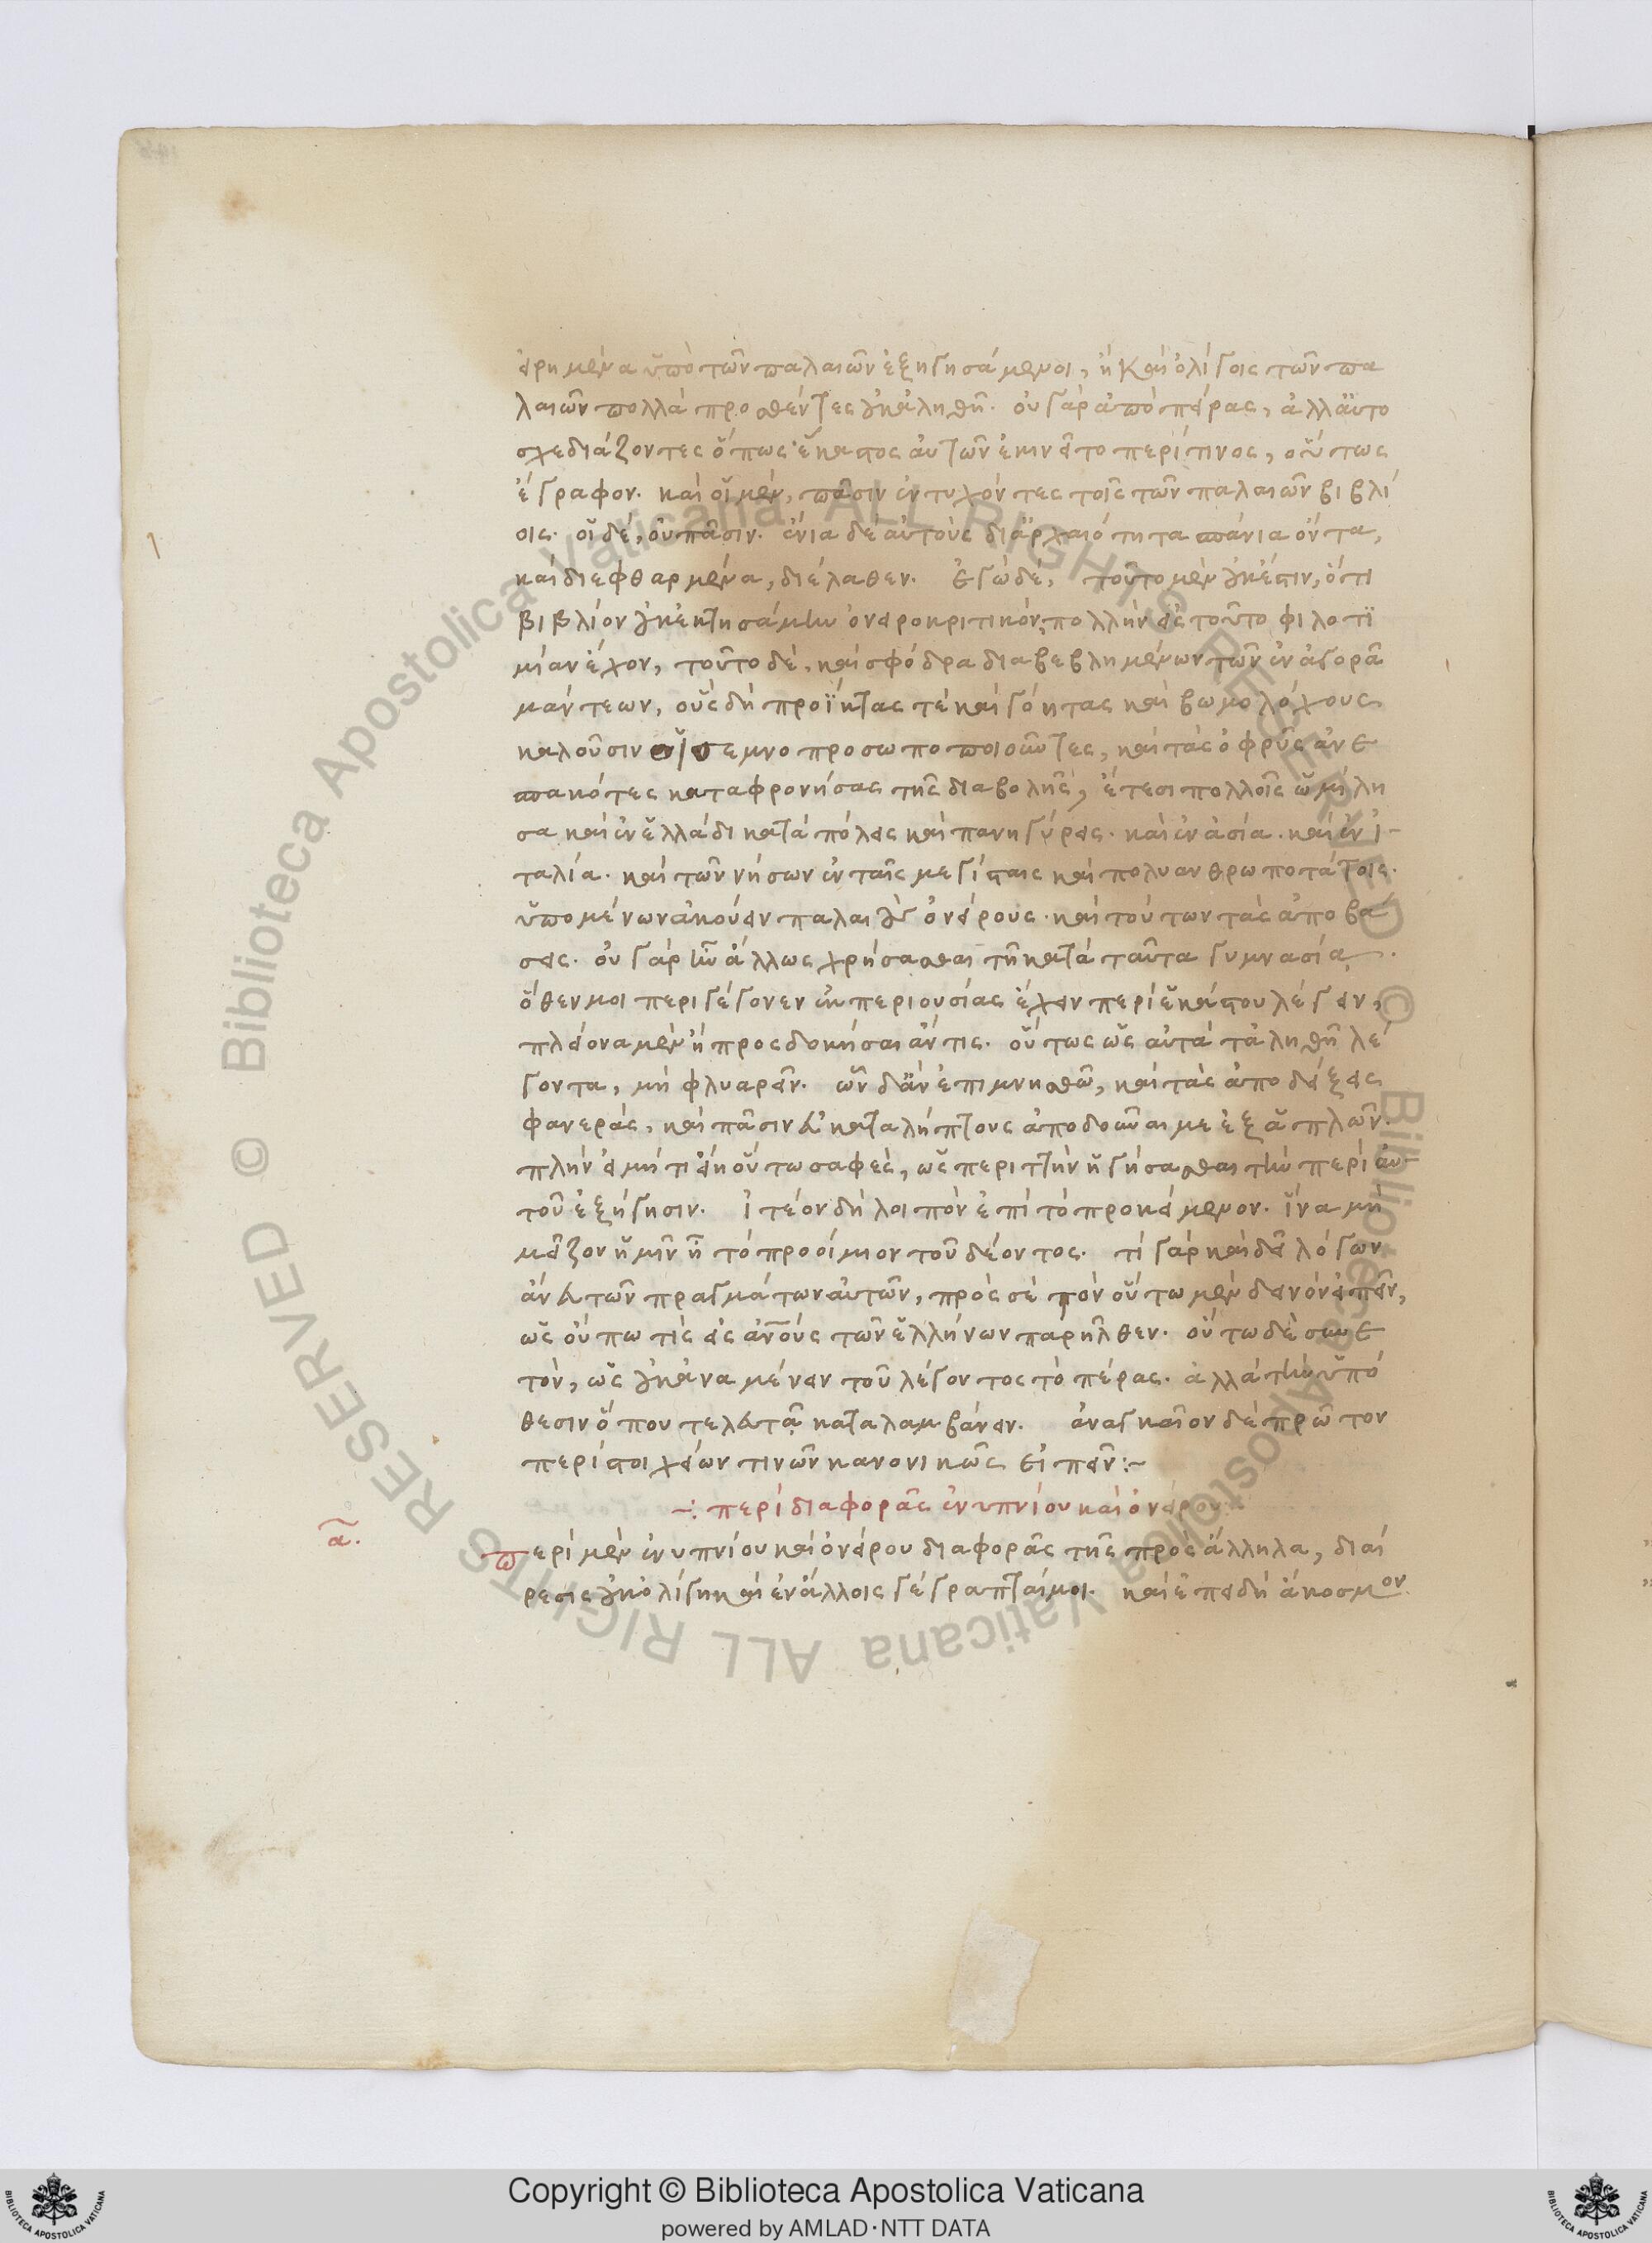 εἰρημένα ὑπὸ τῶν παλαιῶν ἐξηγησάμενοι, ἢ καὶ ὀλίγοις τῶν πα
λαιῶν πολλὰ προσθέντες οὐκ ἀληθῆ. οὐ γὰρ ἀπὸ πείρας, ἀλλ' αὐτο
σχεδιάζοντες ὅπως ἕκαστος αὐτῶν ἐκινεῖτο περί τινος, οὕτως
ἔγραφον. καὶ οἱ μὲν, πᾶσιν ἐντυχόντες τοῖς τῶν παλαιῶν βιβλί
οις. οἱ δὲ, οὐ πᾶσιν. ἔνια δὲ αὐτοὺς δι' ἀρχαιότητα σπάνια ὄντα,
καὶ διεφθαρμένα, διέλαθεν. ἐγὼ δὲ, τοῦτο μὲν οὐκ ἔστιν, ὅτι
βιβλίον οὐκ ἐκτησάμην ὀνειροκριτικόν, πολλὴν εἰς τοῦτο φιλοτι
μίαν ἔχον, τοῦτο δὲ, καὶ σφόδρα διαβεβλημένων τῶν ἐν ἀγορᾶ
μάντεων, οὓς δὴ προΐκτας τὲ καὶ γόητας καὶ βωμολόχους
καλοῦσιν οἱ σεμνοπροσωποποιοῦντες, καὶ τὰς ὀφρῦς ἀνε
σπακότες καταφρονήσας τῆς διαβολῆς, ἔτεσι πολλοῖς ὡμίλη
σα καὶ ἐν ἑλλάδι κατὰ πόλεις καὶ πανηγύρεις. καὶ ἐν ἀσία. καὶ ἐν ἰ-
ταλία. καὶ τῶν νήσων ἐν ταῖς μεγίσταις καὶ πολυανθρωποτάτοις.
ὑπομένων ἀκούειν παλαιοὺς ὀνείρους. καὶ τούτων τὰς ἀποβά
σεις. οὐ γὰρ ἦν ἄλλως χρήσασθαι τῆ κατὰ ταῦτα γυμνασία.
ὅθεν μοι περιγέγονεν ἐκ περιουσίας ἔχειν περὶ ἑκάστου λέγειν,
πλείονα μὲν ἢ προσδοκήσαι ἄν τις. οὕτως ὡς αὐτὰ τἀληθῆ λέ
γοντα, μὴ φλυαρεῖν. ὧν δ' ἂν ἐπιμνησθῶ, καὶ τὰς ἀποδείξεις
φανερὰς, καὶ πᾶσιν εὐκαταλήπτους ἀποδοῦναι με ἐξ ἁπλῶν.
πλὴν εἰ μή τι εἴη οὕτω σαφὲς, ὡς περιττὴν ἡγήσασθαι τὴν περὶ αὐ-
τοῦ ἐξήγησιν. ἰτέον δὴ λοιπὸν ἐπὶ τὸ προκείμενον. ἵνα μὴ
μεῖζον ἡμῖν ἦ τὸ προοίμιον τοῦ δέοντος. τί γὰρ καὶ δεῖ λόγων
ἄνευ τῶν πραγμάτων αὐτῶν, πρὸς σὲ τὸν οὕτω μὲν δεινὸν εἰπεῖν,
ὡς οὔπω τίς εἰς ἀνους τῶν ἑλλήνων παρῆλθεν. οὕτω δὲ συνε
τὸν, ὡς οὐκ ἀναμένειν τοῦ λέγοντος τὸ πέρας. ἀλλὰ τὴν ὑπό
θεσιν ὅπου τελευτᾷ καταλαμβάνειν. ἀναγκαῖον δὲ πρῶτον
περὶ στοιχείων τινῶν κανονικῶς εἰπεῖν:~
~: περὶ διαφορᾶς ἐνυπνίου καὶ ὀνείρου:
α. περὶ μὲν ἐνυπνίου καὶ ὀνείρου διαφορᾶς τῆς πρὸς ἄλληλα, διαί
ρεσις οὐκ ὀλίγη καὶ ἐν ἄλλοις γέγραπταί μοι. καὶ ἐπειδὴ ἄκοσμον
Copyright © Biblioteca Apostolica Vaticana
powered by AMLAD·NTT DATA
© Biblioteca Apostolica Vaticana ALL RIGHTS RESERVED
© Biblioteca Apostolica Vaticana ALL RIGHTS RESERVED